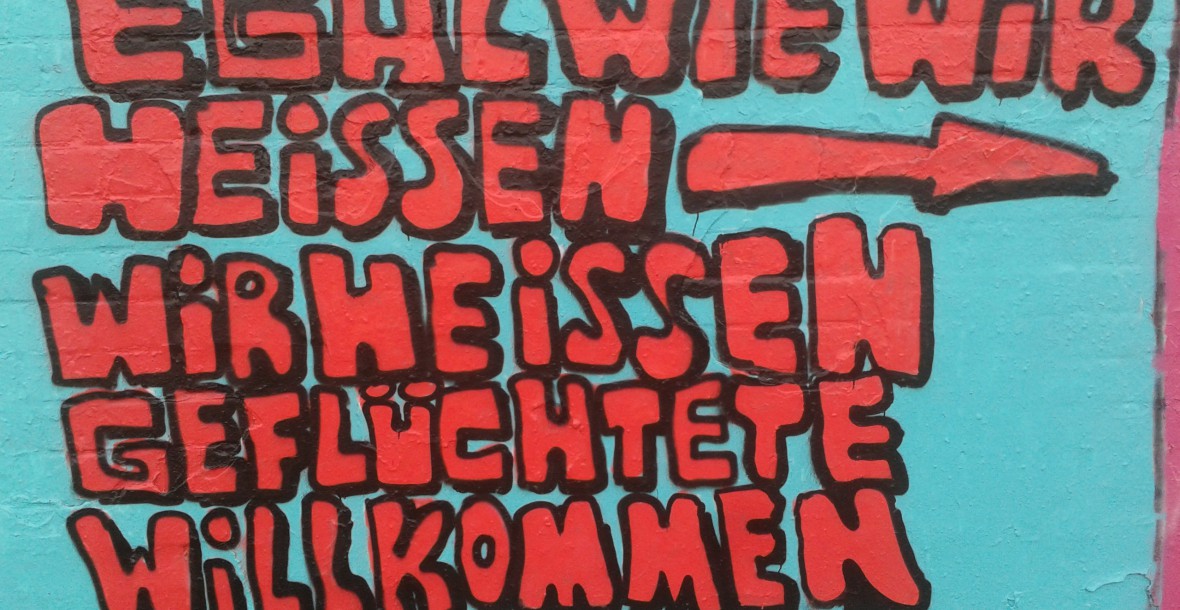 EGAL WIE WiR
HEiSSEN
WiR HEiSSEN
GEFLÜCHTETE
WiLLKOMMEN